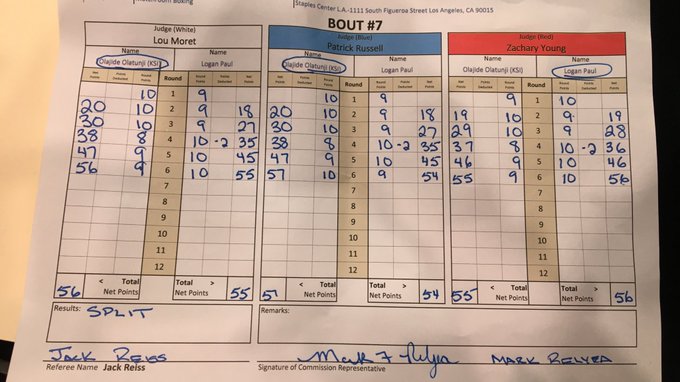 Matchroom Boxing
Staples Center L.A.-1111 South Figueroa Street Los Angeles, CA 90015
BOUT #7
Judge (White)
Lou Moret
Judge (Blue)
Patrick Russell
Judge (Red)
Zachary Young
Name Name Name Name Name Name
Olajide Olatunji (KSI) Logan Paul Olajide Olatunji (KSI) Logan Paul Olajide Olatunji (KSI) Logan Paul
Net Points Points Deducted Round Points Round Round Points Points Deducted Net Points Net Points Points Deducted Round Points Round Round Points Points Deducted Net Points Net Points Points Deducted Round Points Round Round Points Points Deducted Net Points
10 1 9 10 1 9 9 1 10
20 10 2 9 18 20 10 2 9 18 19 10 2 9 19
30 10 3 9 27 30 10 3 9 27 29 10 3 9 28
38 8 4 10 -2 35 38 8 4 10 -2 35 37 8 4 10 -2 36
47 9 5 10 45 47 9 5 10 45 46 9 5 10 46
56 9 6 10 55 57 10 6 9 54 55 9 6 10 56
7 7 7
8 8 8
9 9 9
10 10 10
11 11 11
12 12 12
56 < Total > Net Points 55 57 < Total > Net Points 54 55 < Total > Net Points 56
Results: SPLIT
Remarks:
JACK REISS
Referee Name Jack Reiss
Mark F Relyea MARK RELYEA
Signature of Commission Representative